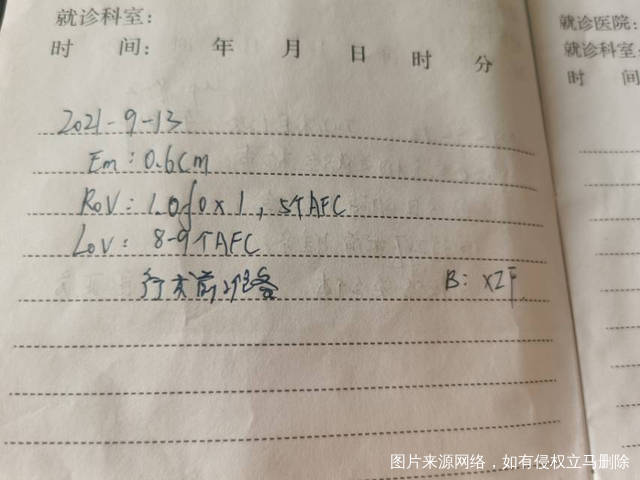 就诊科室:
时 间: 年 月 日 时 分
2021-9-13
Em: 0.6cm
ROV: 1.0 x 1, 5个AFC
LOV: 8-9个AFC
行术前准备 B: XZF
就诊医院:
就诊科室:
时 间
图片来源网络，如有侵权立马删除